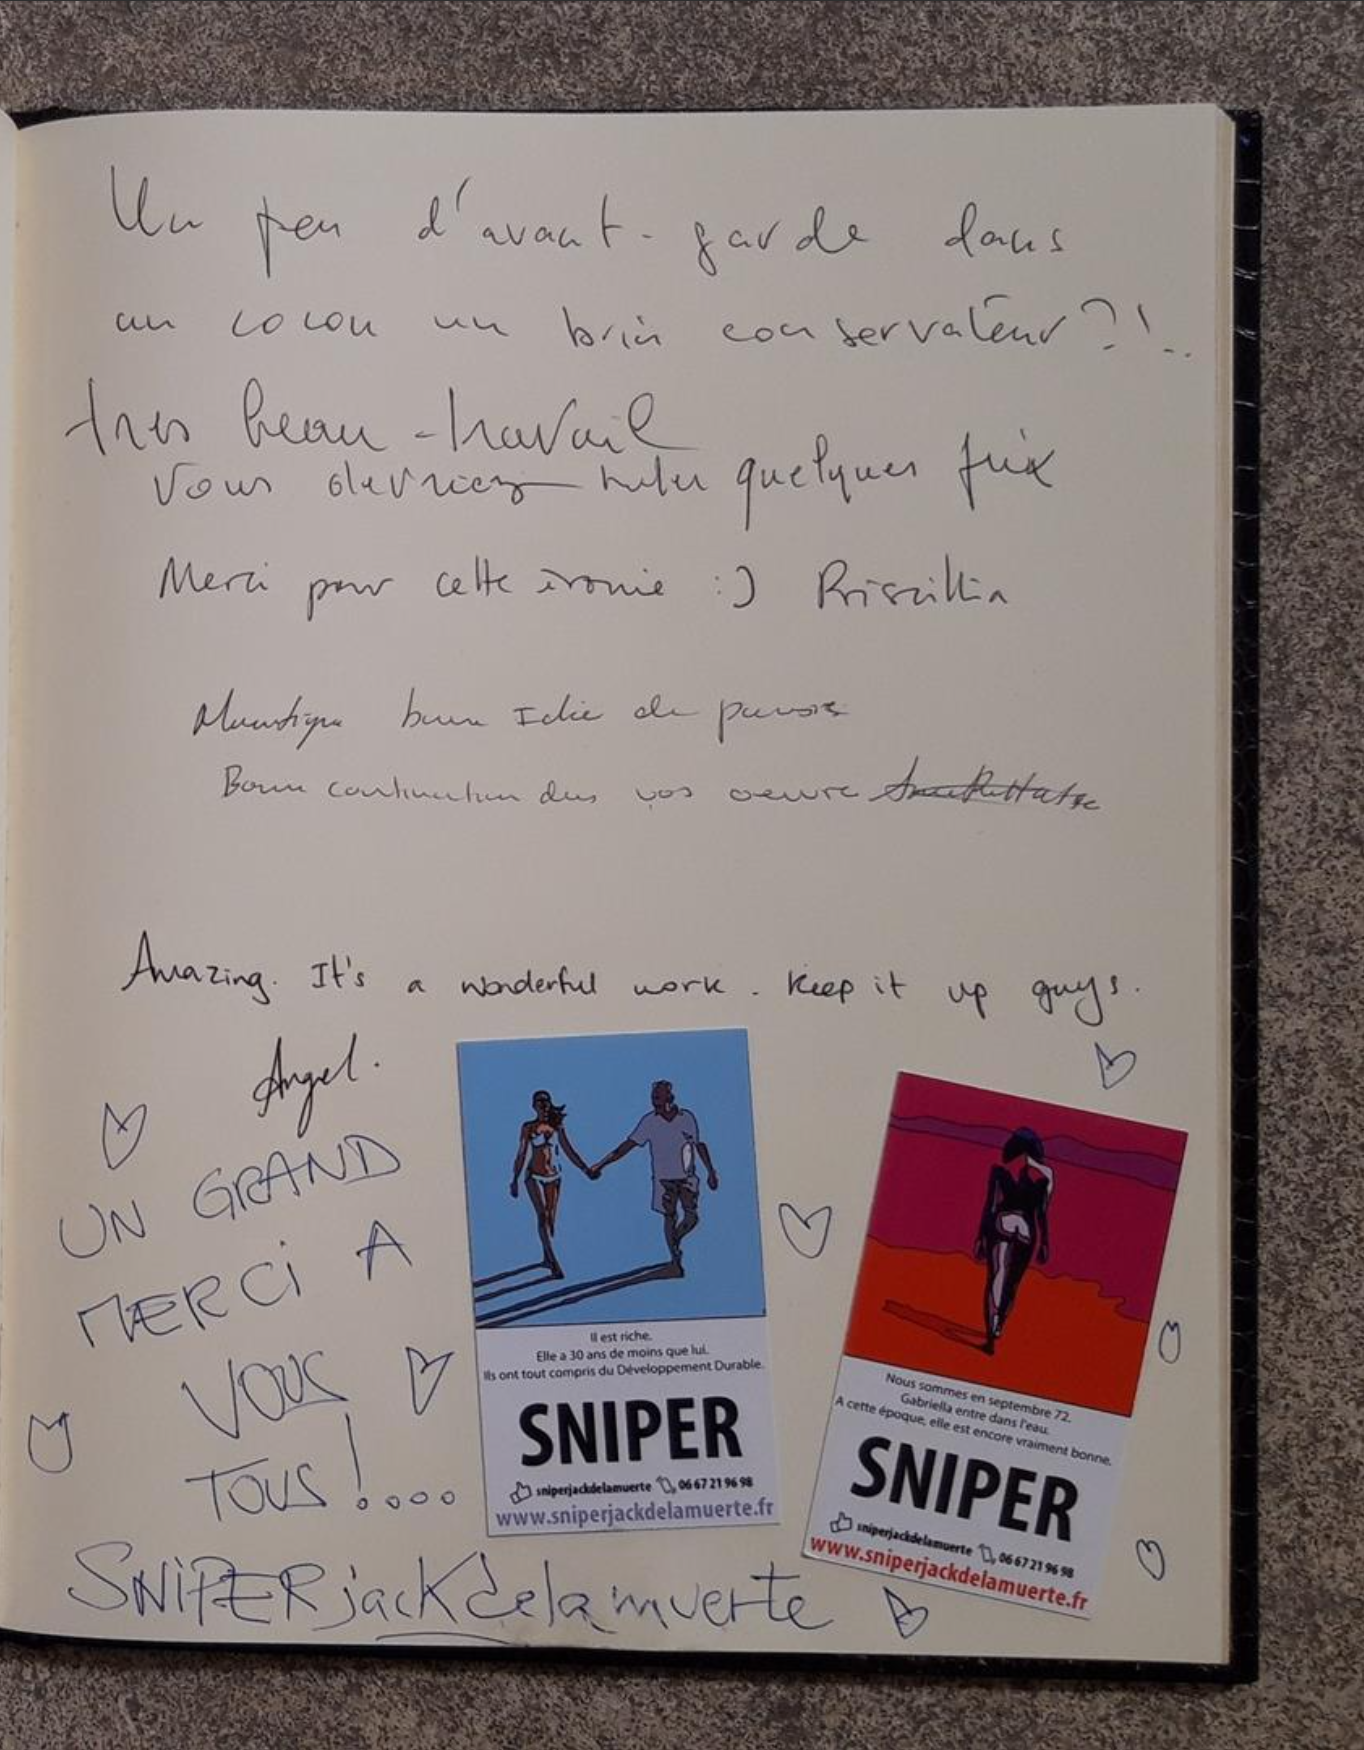 Un peu d'avant-garde dans
un cocon un brin conservateur ?!..
très beau travail
Vous devriez quelques prix
Merci pour cette ironie :) Priscillia
bonne Idée de
Bonne continuation dans vos oeuvre
Amazing. It's a wonderful work. Keep it up guys.
Angel.
UN GRAND
MERCi A
VOUS
TOUS !....
SNiPERjackdelamuerte
Il est riche.
Elle a 30 ans de moins que lui.
Ils ont tout compris du Développement Durable.
SNIPER
sniperjackdelamuerte 06 67 21 96 98
www.sniperjackdelamuerte.fr
Nous sommes en septembre 72.
Gabriella entre dans l'eau.
A cette époque, elle est encore vraiment bonne.
SNIPER
sniperjackdelamuerte 06 67 21 96 98
www.sniperjackdelamuerte.fr